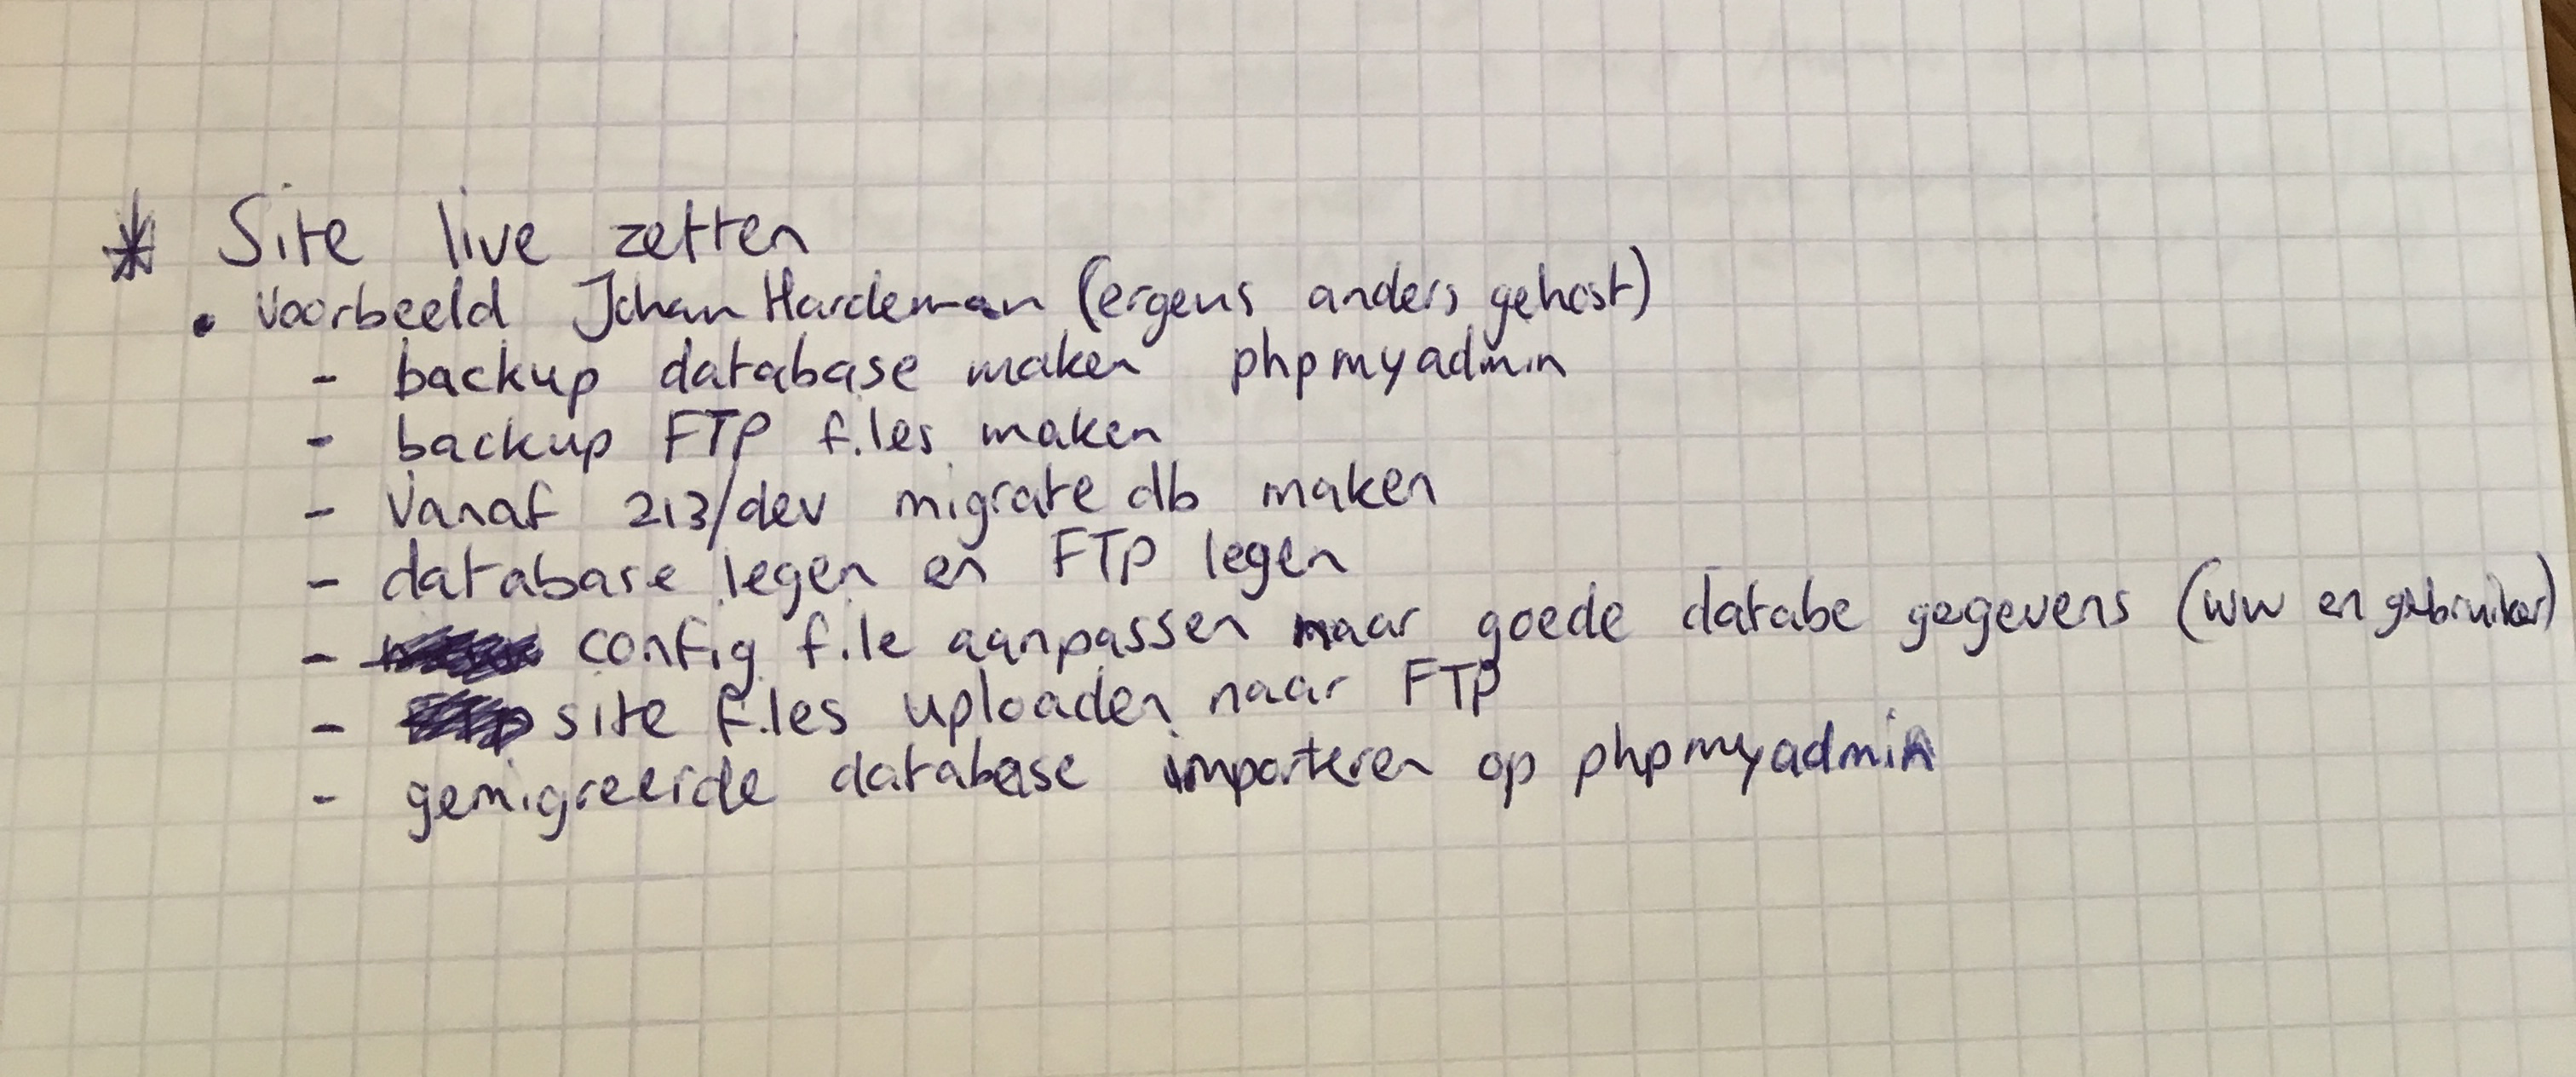 * Site live zetten
• Voorbeeld Johan Hardeman (ergens anders gehost)
- backup database maken phpmyadmin
- backup FTP files maken
- Vanaf 213/dev migrate db maken
- database legen en FTP legen
- config file aanpassen naar goede databe gegevens (ww en gebruiker)
- site files uploaden naar FTP
- gemigreerde database importeren op phpmyadmin